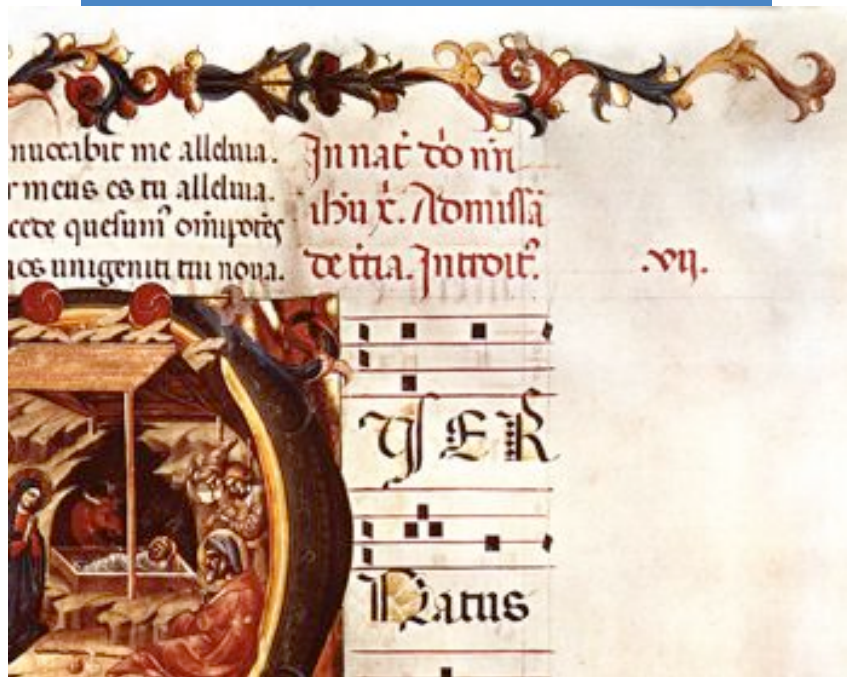 nuocabit me alleluia.
r meus es tu alleluia.
cede quesum⁹ om̄ipotēs
nos unigeniti tui noua.
In nat̄ dō nr̄i
ih̄u x̄. Ad missā
de t̄tia. Introit⁹.
.vij.
UER
Natus